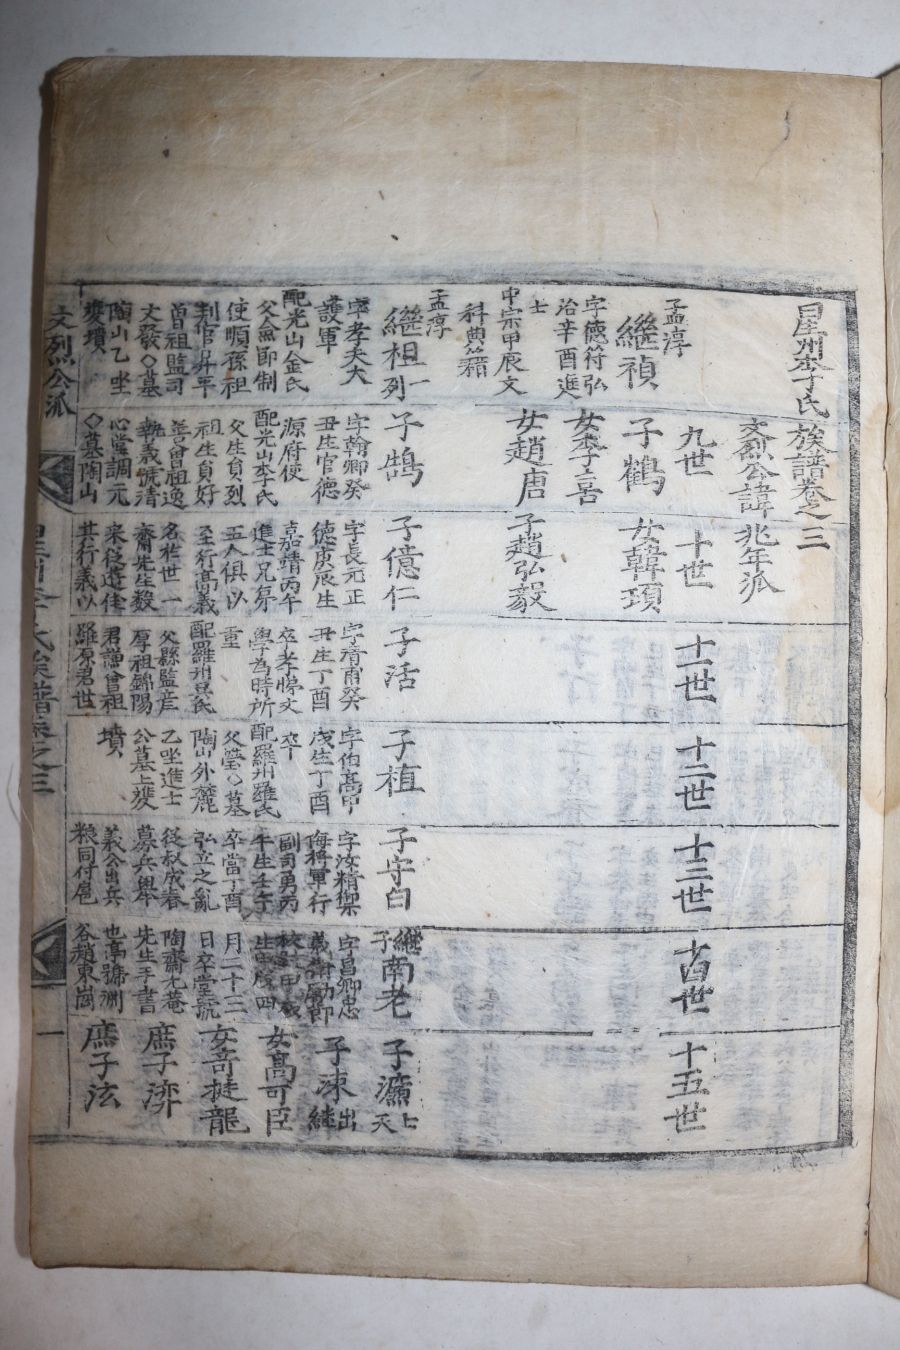 星州李氏族譜卷之三
文烈公諱兆年派
九世
十世
十一世
十二世
十三世
十四世
十五世
孟淳
繼禎
字德符弘
治辛酉進
士
中宗甲辰文
科典籍
子鶴
女李言
女趙唐
女韓頊
子趙弘毅
孟淳
繼祖一
列
字孝夫大
護軍
配光山金氏
父僉節制
使順孫祖
判官昇平
曾祖監司
文發◇墓
陶山乙坐
雙墳
子鵠
字翰卿癸
丑生官德
源府使
配光山李氏
父生員烈
祖生員好
善曾祖逸
執義號清
心堂調元
◇墓陶山
子億仁
字長元正
德庚辰生
嘉靖丙午
進士兄弟
五人俱以
至行高義
名於世一
齋先生數
來從遊佳
其行義以
子活
字清甫癸
丑生丁酉
卒孝悌文
學為時所
重
配羅州吳氏
父縣監彦
厚祖錦陽
君謙曾祖
羅原君世
子植
字伯高甲
戌生丁酉
卒
配羅州羅氏
父瑩◇墓
陶山外麓
乙坐進士
公墓上雙
墳
子守白
字汝精禦
侮將軍行
副司勇丙
午生壬子
卒當丁酉
弘立之亂
從叔成春
募兵與牟
義公出兵
粮同付扈
繼子
南老
字昌卿忠
義
生
月二十三
日卒堂號
陶齋尤菴
先生手書
也亭號洲
谷趙東崗
子灦
上天
子涷
出繼
女高可臣
女奇挺龍
庶子濟
庶子泫
文烈公派
星州李氏族譜卷之三
一